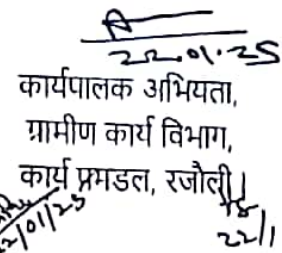 22.01.25
कार्यपालक अभियता,
ग्रामीण कार्य विभाग,
कार्य प्रमडल, रजौली
22/01/25
22/1